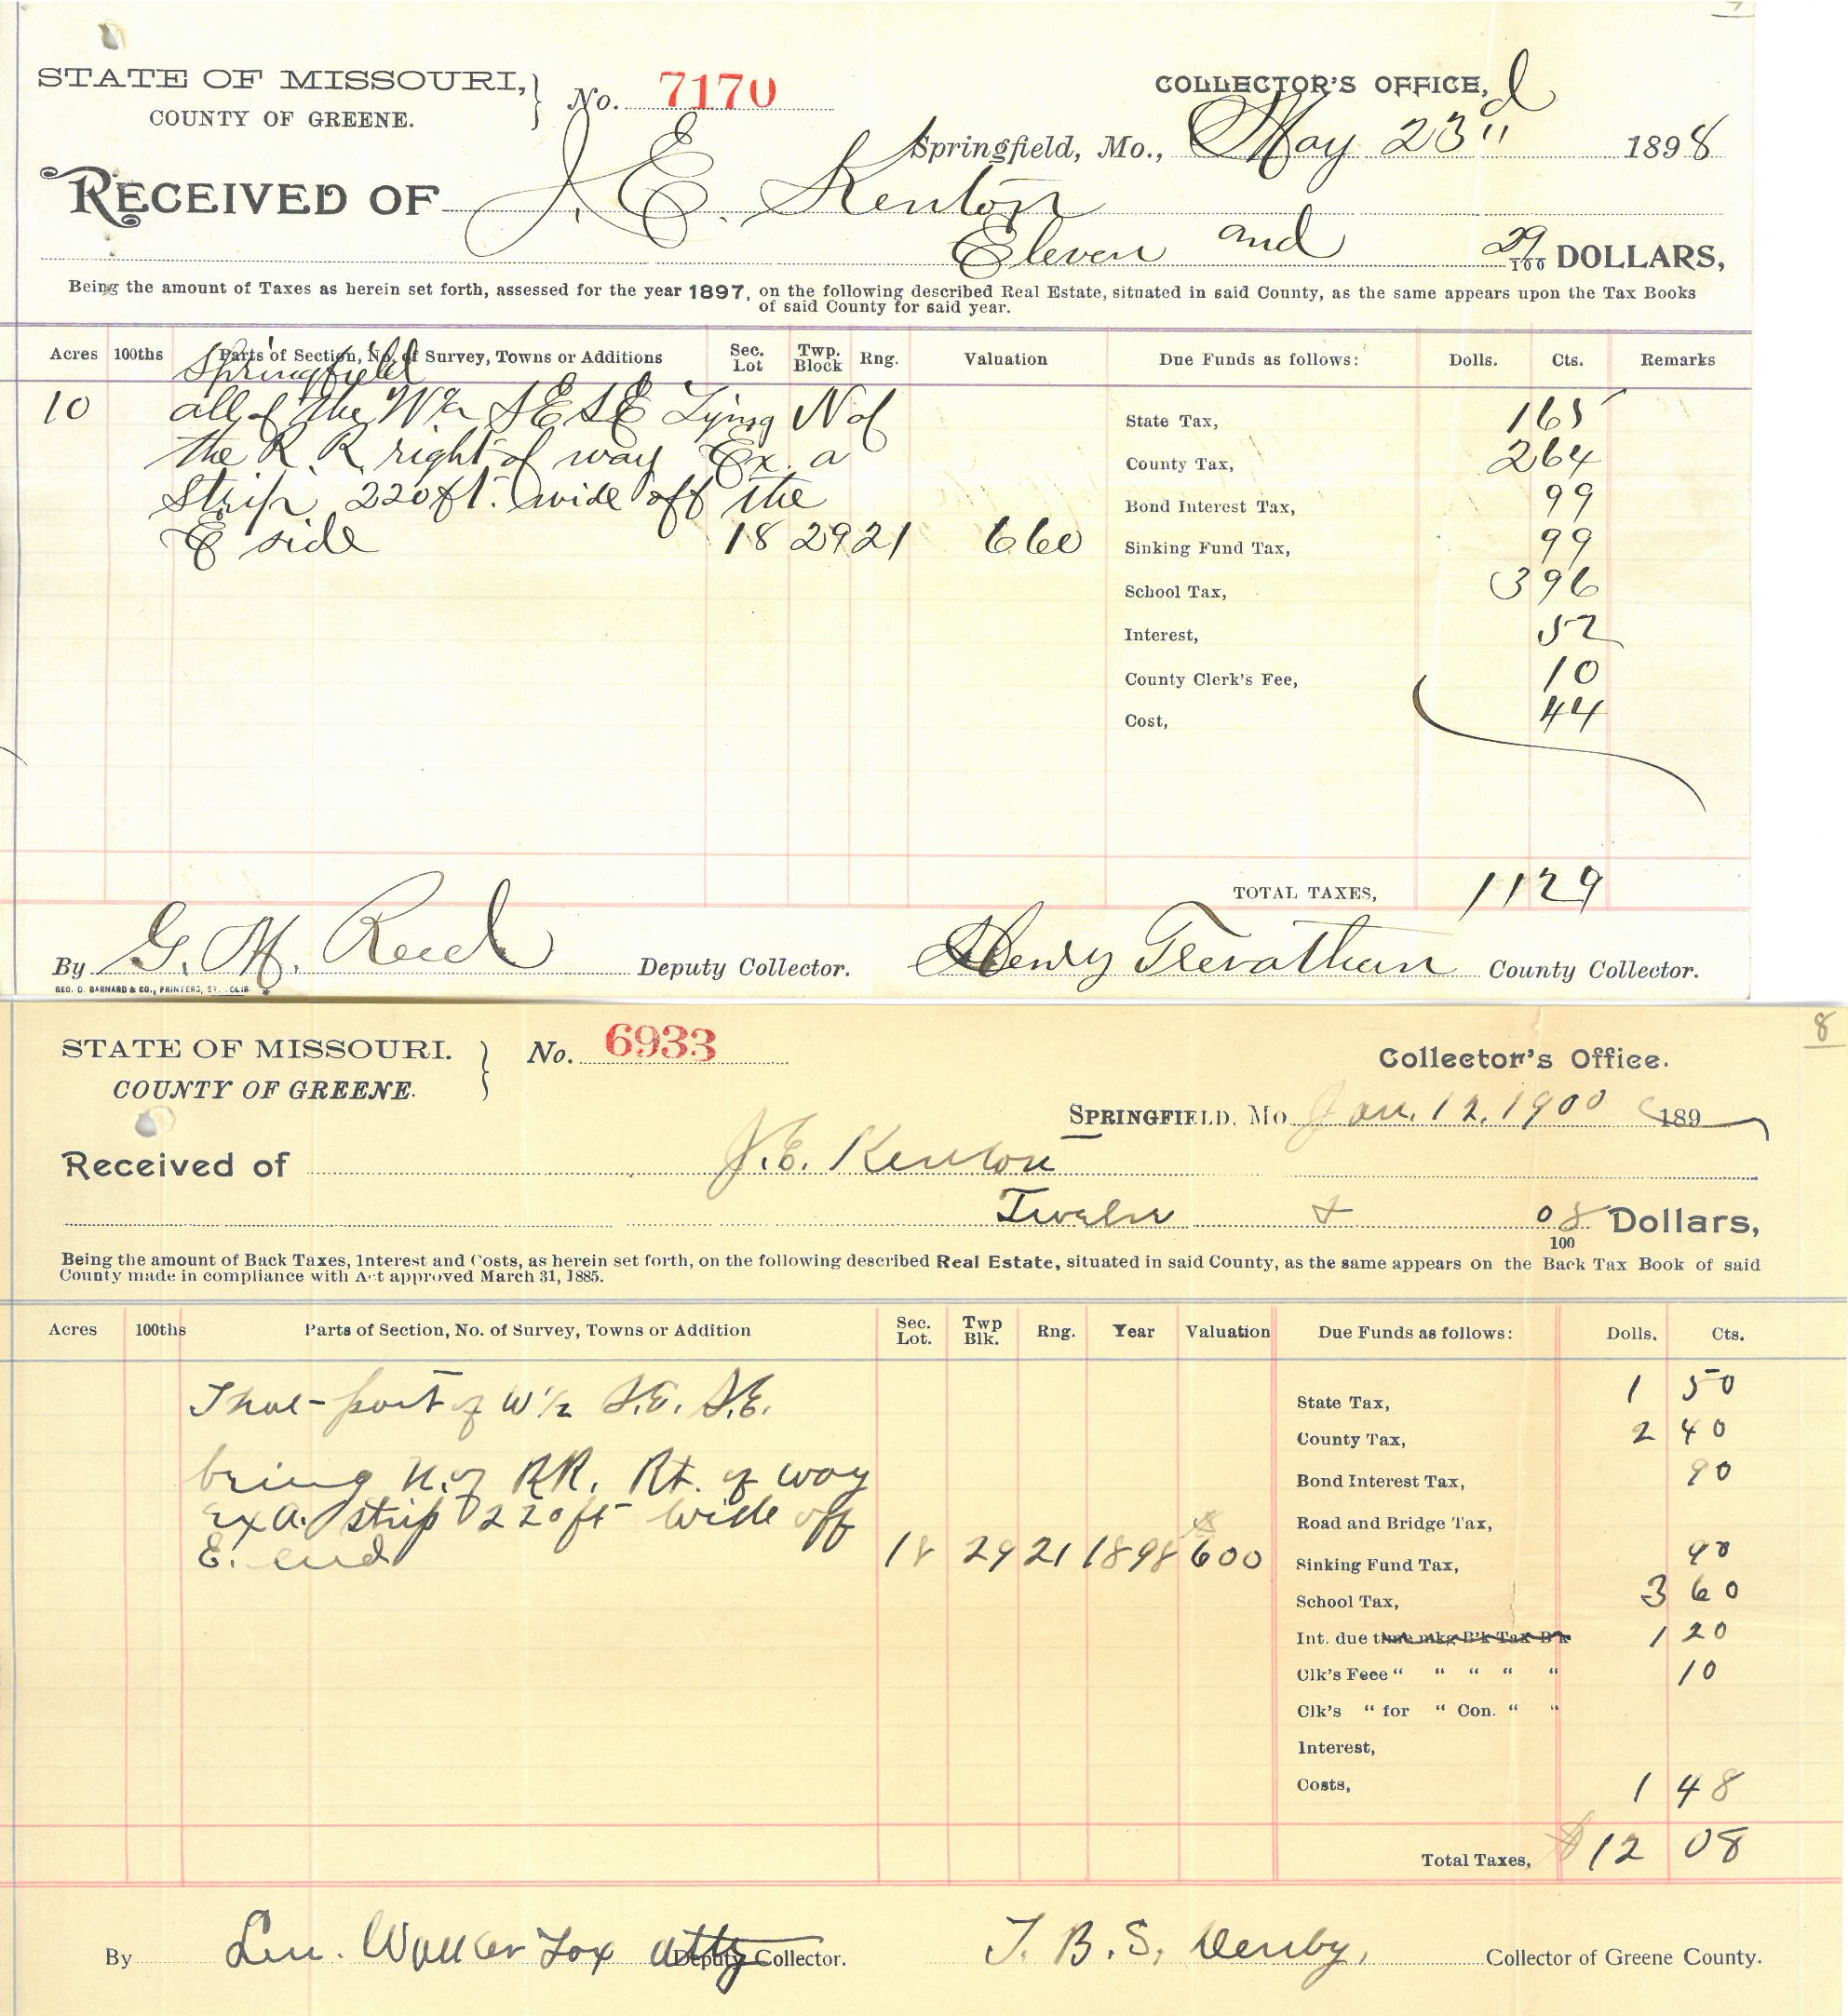 STATE OF MISSOURI,
COUNTY OF GREENE.
No. 7170
COLLECTOR'S OFFICE,
Springfield, Mo., May 23" 1898
RECEIVED OF J. E. Kenton
Eleven and 29/100 DOLLARS,
Being the amount of Taxes as herein set forth, assessed for the year 1897, on the following described Real Estate, situated in said County, as the same appears upon the Tax Books
of said County for said year.
Acres 100ths Parts of Section, No. of Survey, Towns or Additions Sec. Lot Twp. Block Rng. Valuation Due Funds as follows: Dolls. Cts. Remarks
Springfield
10 all of the W½ SE SE Lying N of State Tax, 1 65
the R. R. right of way Ex. a County Tax, 2 64
Strip 220 ft. wide off the Bond Interest Tax, 99
E side 18 29 21 660 Sinking Fund Tax, 99
School Tax, 3 96
Interest, 52
County Clerk's Fee, 10
Cost, 44
TOTAL TAXES, 11 29
By G. M. Reed Deputy Collector. Henry Trevathan County Collector.
GEO. D. BARNARD & CO., PRINTERS, ST. LOUIS
8
STATE OF MISSOURI.
COUNTY OF GREENE.
No. 6933
Collector's Office.
SPRINGFIELD, Mo. Jan. 12, 1900 189
Received of J. E. Kenton
Twelve & 08/100 Dollars,
Being the amount of Back Taxes, Interest and Costs, as herein set forth, on the following described Real Estate, situated in said County, as the same appears on the Back Tax Book of said
County made in compliance with Act approved March 31, 1885.
Acres 100ths Parts of Section, No. of Survey, Towns or Addition Sec. Lot. Twp Blk. Rng. Year Valuation Due Funds as follows: Dolls. Cts.
That part of W½ S.E. S.E. State Tax, 1 50
County Tax, 2 40
being N. of RR. Rt. of way Bond Interest Tax, 90
ex a. strip 220 ft wide off Road and Bridge Tax,
E. end 18 29 21 1898 600 Sinking Fund Tax, 90
School Tax, 3 60
Int. due time mkg B'k Tax B'k 1 20
Clk's Feee " " " " " 10
Clk's " for " Con. " "
Interest,
Costs, 1 48
Total Taxes, $12 08
By Len. Walker Fox atty Deputy Collector. T. B. S. Denby, Collector of Greene County.